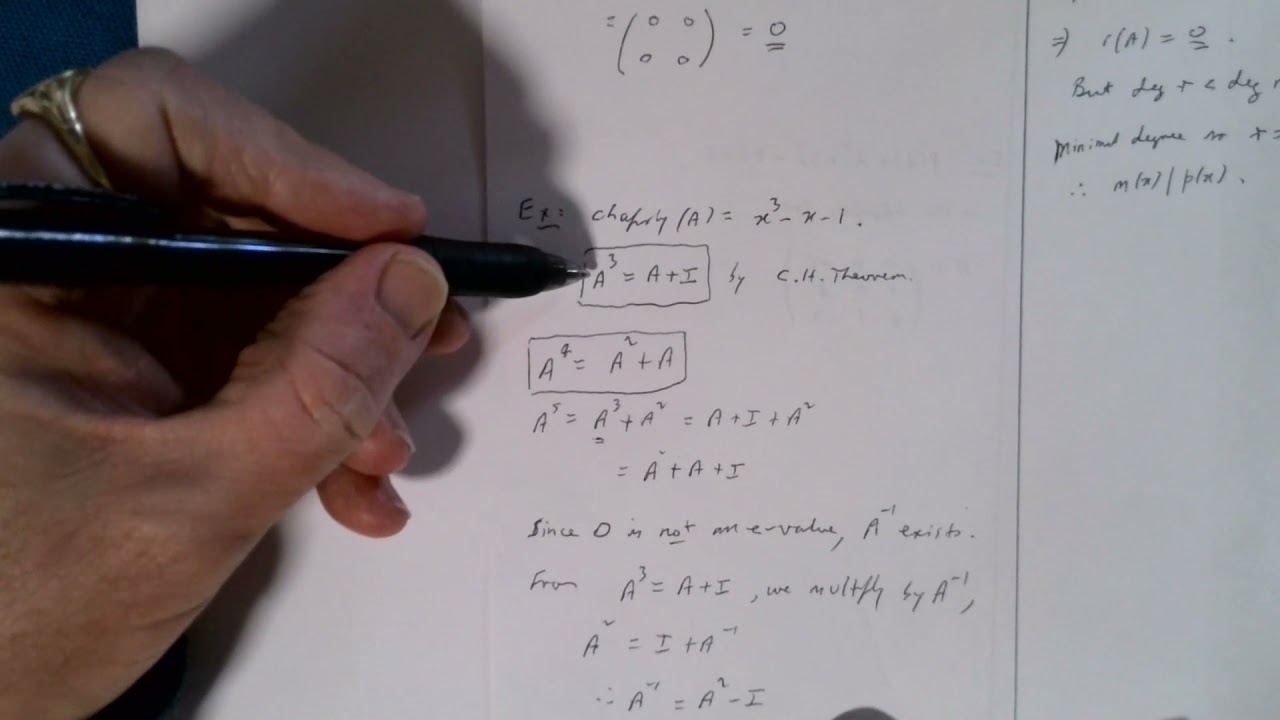 = ( 0 0 ) = 0
0 0
Ex: charpoly(A) = x³ - x - 1.
A³ = A + I by C.H. Theorem.
A⁴ = A² + A
A⁵ = A³ + A² = A + I + A²
= A² + A + I
Since 0 is not an e-value, A⁻¹ exists.
From A³ = A + I, we multiply by A⁻¹,
A² = I + A⁻¹
∴ A⁻¹ = A² - I
⇒ r(A) = 0.
But deg r < deg
Minimal degree so r =
∴ m(x) | p(x).